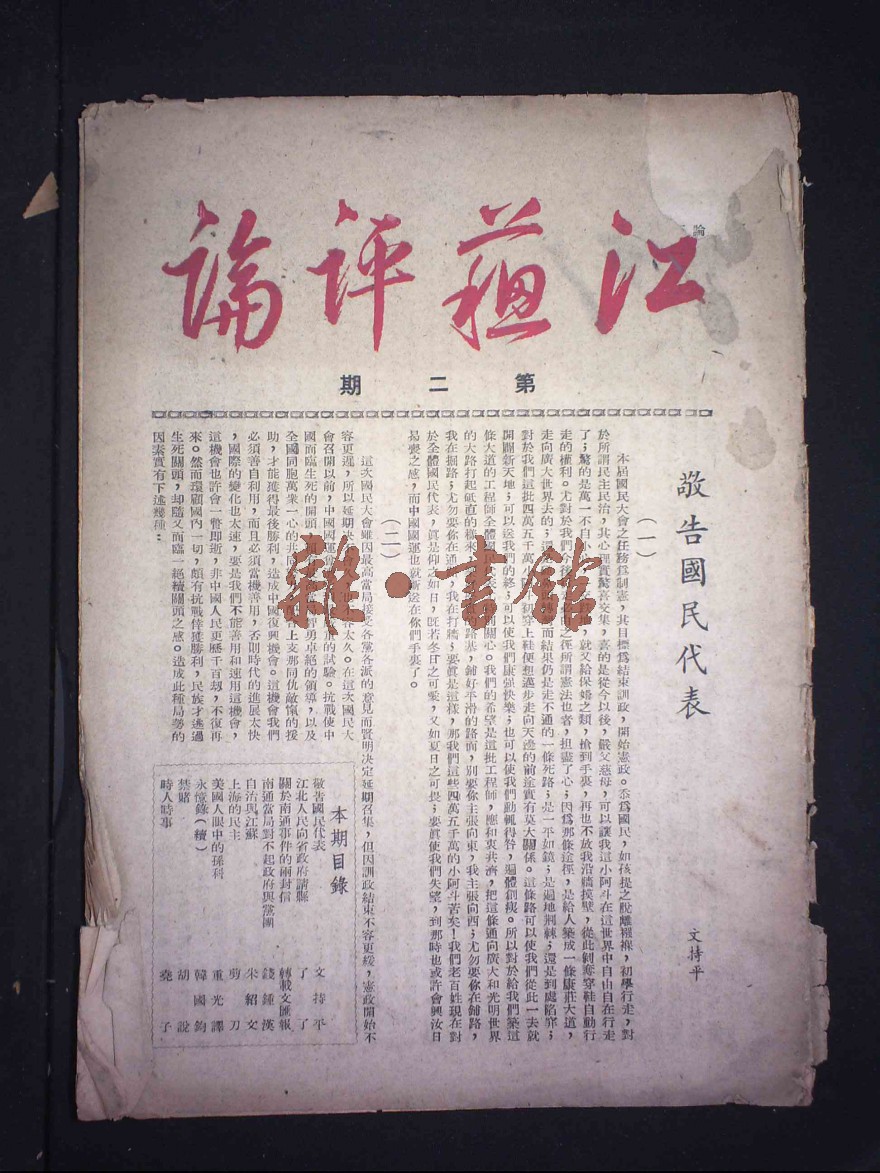 論
江蘇評論
第二期
敬告國民代表
文持平
(一)
本屆國民大會之任務爲制憲,其目標爲結束訓政,開始憲政。忝爲國民,如孩提之脫離襁褓,初學行走,對
於所謂民主民治,其心理實驚喜交集,喜的是從今以後,嚴父慈母,可以讓我這小阿斗在這世界中自由自在行走
了;驚的是萬一不自 就又給保姆之類,搶到手裏,再也不放我沿牆摸壁,從此剝奪穿鞋自動行
走的權利。尤對於我們今後 之徑所謂憲法也者,担盡了心;因爲那條途徑,是給人築成一條康莊大道,
走向廣大世界去的;還 而結果仍是走不通的一條死路;是一平如鏡;是遍地荆棘;還是到處陷阱;
對於我們這批四萬五千萬小 初穿上鞋便想邁步走向天邊的前途實有莫大關係。這條路可以使我們從此一去就
開闢新天地;可以送我們的終;可以使我們康强快樂;也可以使我們動輒得咎,遍體創痍。所以對於給我們築這
條大道的工程師全體國民代表 關心。我們的希望是這批工程師,應和衷共濟,把這條通向廣大和光明世界
的大路打起砥直的樣來, 路基,鋪好平滑的路面,別要你主張向東,我主張向西;尤勿要你在鋪路,
我在掘路;尤勿要你在通 我在打牆;要眞是這樣,那我們這些四萬五千萬的小阿斗苦矣!我們老百姓現在對
於全體國民代表,眞是仰之如日,旣若冬日之可愛,又如夏日之可畏;要眞使我們失望,到那時也或許會興汝日
曷喪之感,而中國國運也就斷送在你們手裏了。
(二)
這次國民大會雖因最高當局接受各黨各派的意見而賢明决定延期召集,但因訓政結束不容更緩,憲政開始不
容更遲,所以延期决 容太久。在這次國民大
會召開以前,中國國運 重的試驗。抗戰使中
國而臨生死的開頭, 智勇卓絕的領導,以及
全國同胞萬衆一心的共同 上支那同仇敵愾的援
助,才能獲得最後勝利,造成中國復興機會。這機會我們
必須善自利用,而且必須當機善用,否則時代的進展太快
,國際的變化也太速,要是我們不能善用和速用這機會,
這機會也許會一瞥即逝,非中國人民更歷千百刼,不復再
來。然而環顧國內一切,頗有抗戰倖獲勝利,民族才逃過
生死關頭,却隨又而臨一絕續關頭之感。造成此種局勢的
因素實有下述幾種:
本期目錄
敬告國民代表 文持平
江北人民向省政府請賑 了了
關於南通事件的兩封信 轉載文匯報
南通當局對不起政府與黨團 錢鍾漢
自治與江蘇 朱紹文
上海的民主 剪刀
美國人眼中的孫科 重光譯
永憶錄(續) 韓國鈞
禁賭 胡說
時人時事 堯子
雜·書館